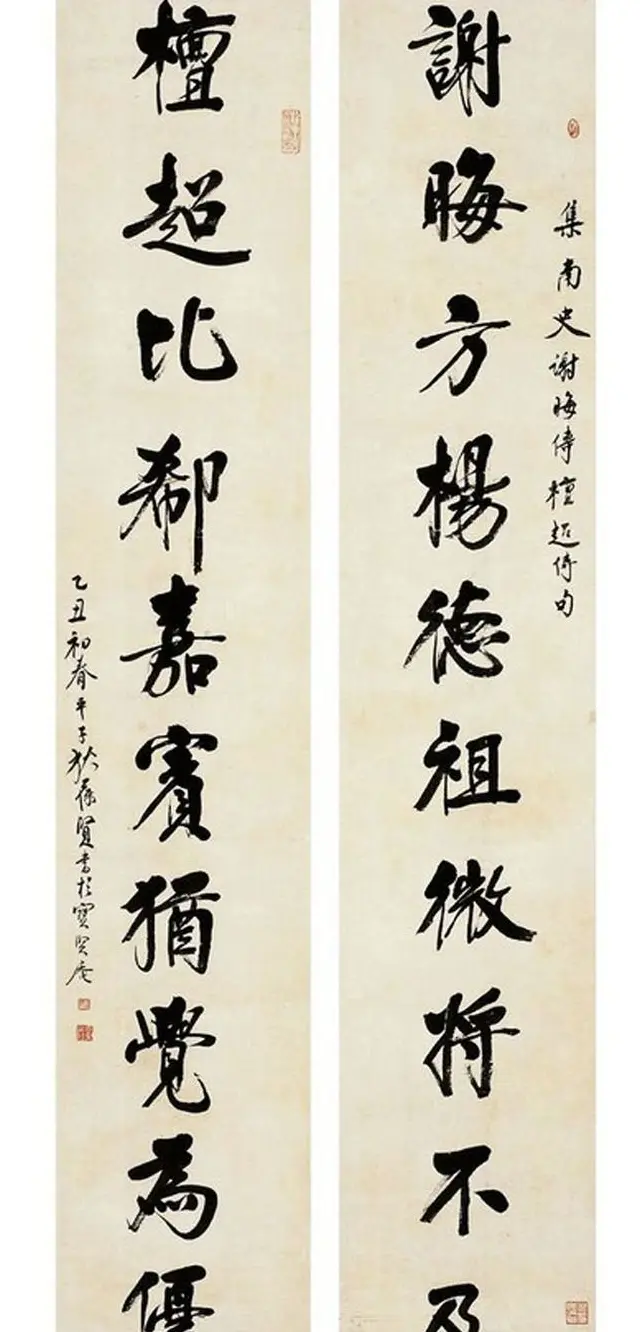 集南史謝晦傳檀超傳句
謝晦方楊德祖微將不及
檀超比郗嘉賓猶覺為優
乙丑初春平子狄葆賢書於寶賢庵